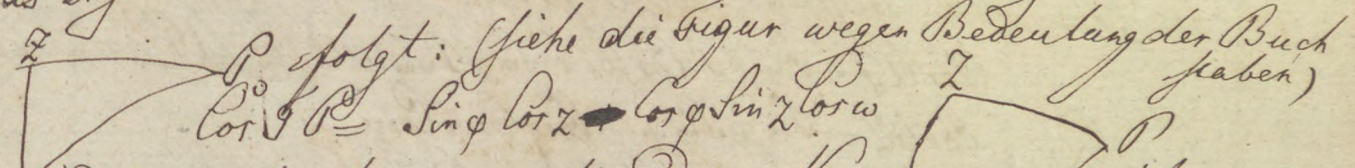 Z P folgt: (siehe die Figur wegen Bedeutung der Buch
Z staben)
Cos S P = Sin φ Cos z - Cos φ Sin z Cos ω
P